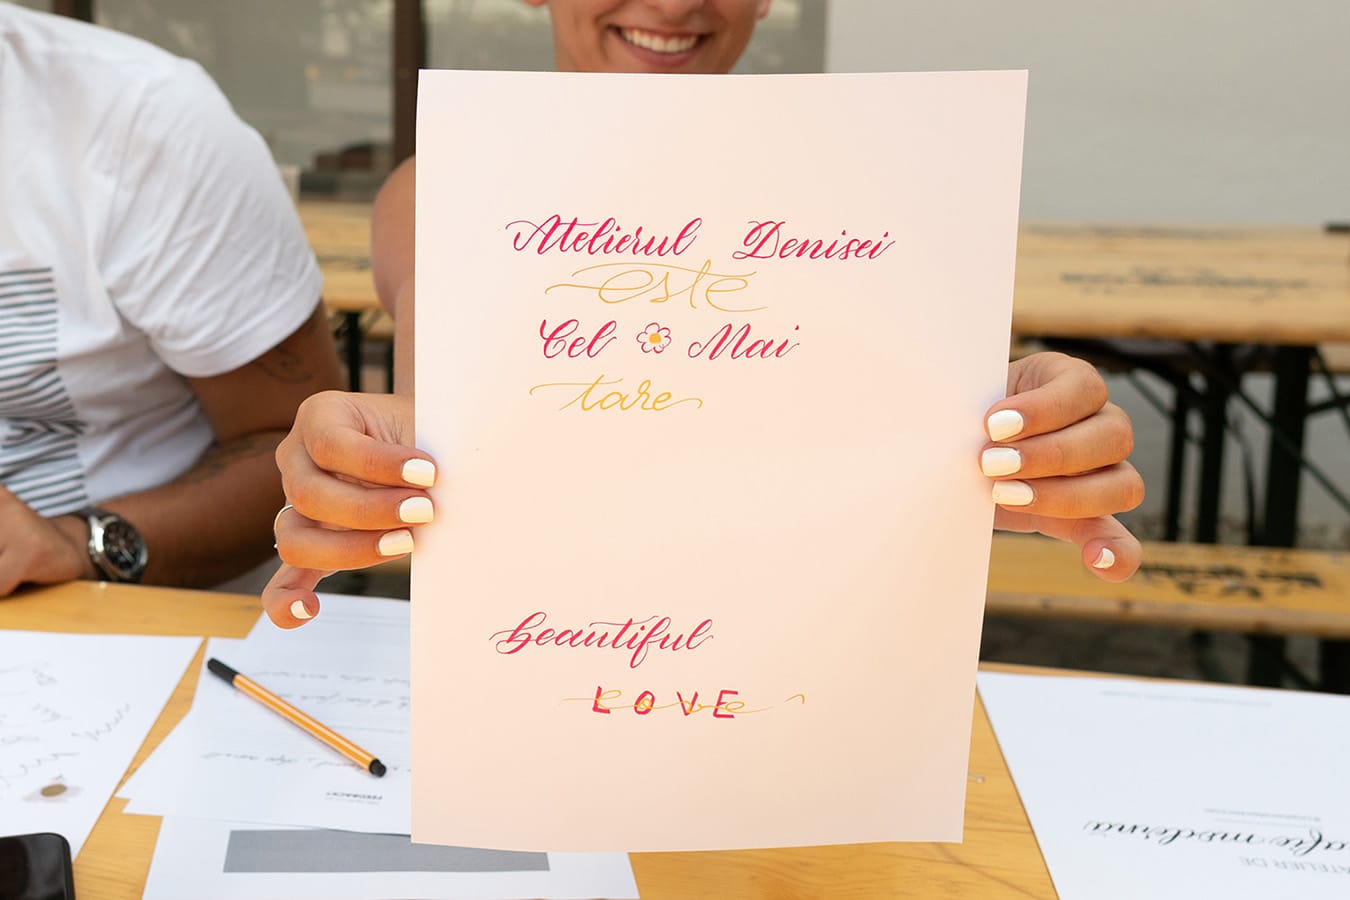 Atelierul Denisei
este
Cel Mai
tare
beautiful
LOVE
love
FEEDBACK
ATELIER DE
modernă